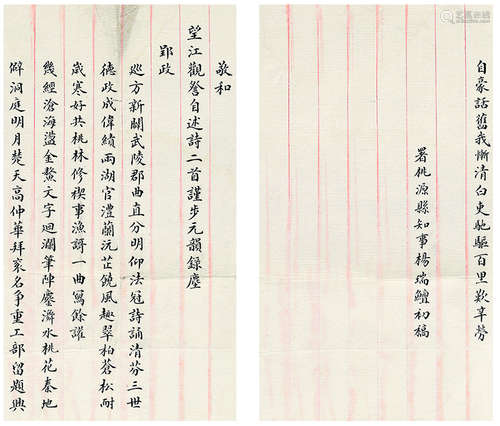 敬和
望江觀詧自述詩二首謹步元韻錄塵
郢政
巡方新闢武陵郡曲直分明仰法冠詩誦清芬三世
德政成偉績兩湖官澧蘭沅芷饒風趣翠柏蒼松耐
歲寒好共桃林修禊事漁謌一曲寫餘讙
幾經滄海盪金鰲文字迴瀾筆陣鏖濟水桃花秦地
僻洞庭明月楚天高仲華拜袞名爭重工部留題興
自豪話舊我慚清白吏馳驅百里歎辛勞
署桃源縣知事楊瑞鱣初稿